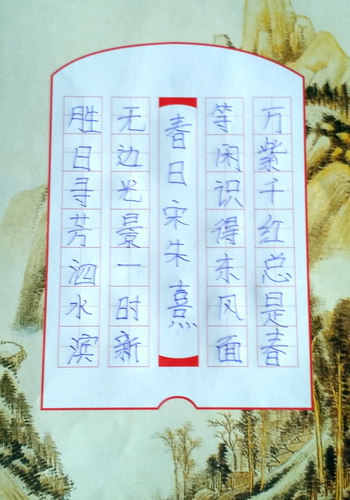 胜日寻芳泗水滨
无边光景一时新
春日宋朱熹
等闲识得东风面
万紫千红总是春